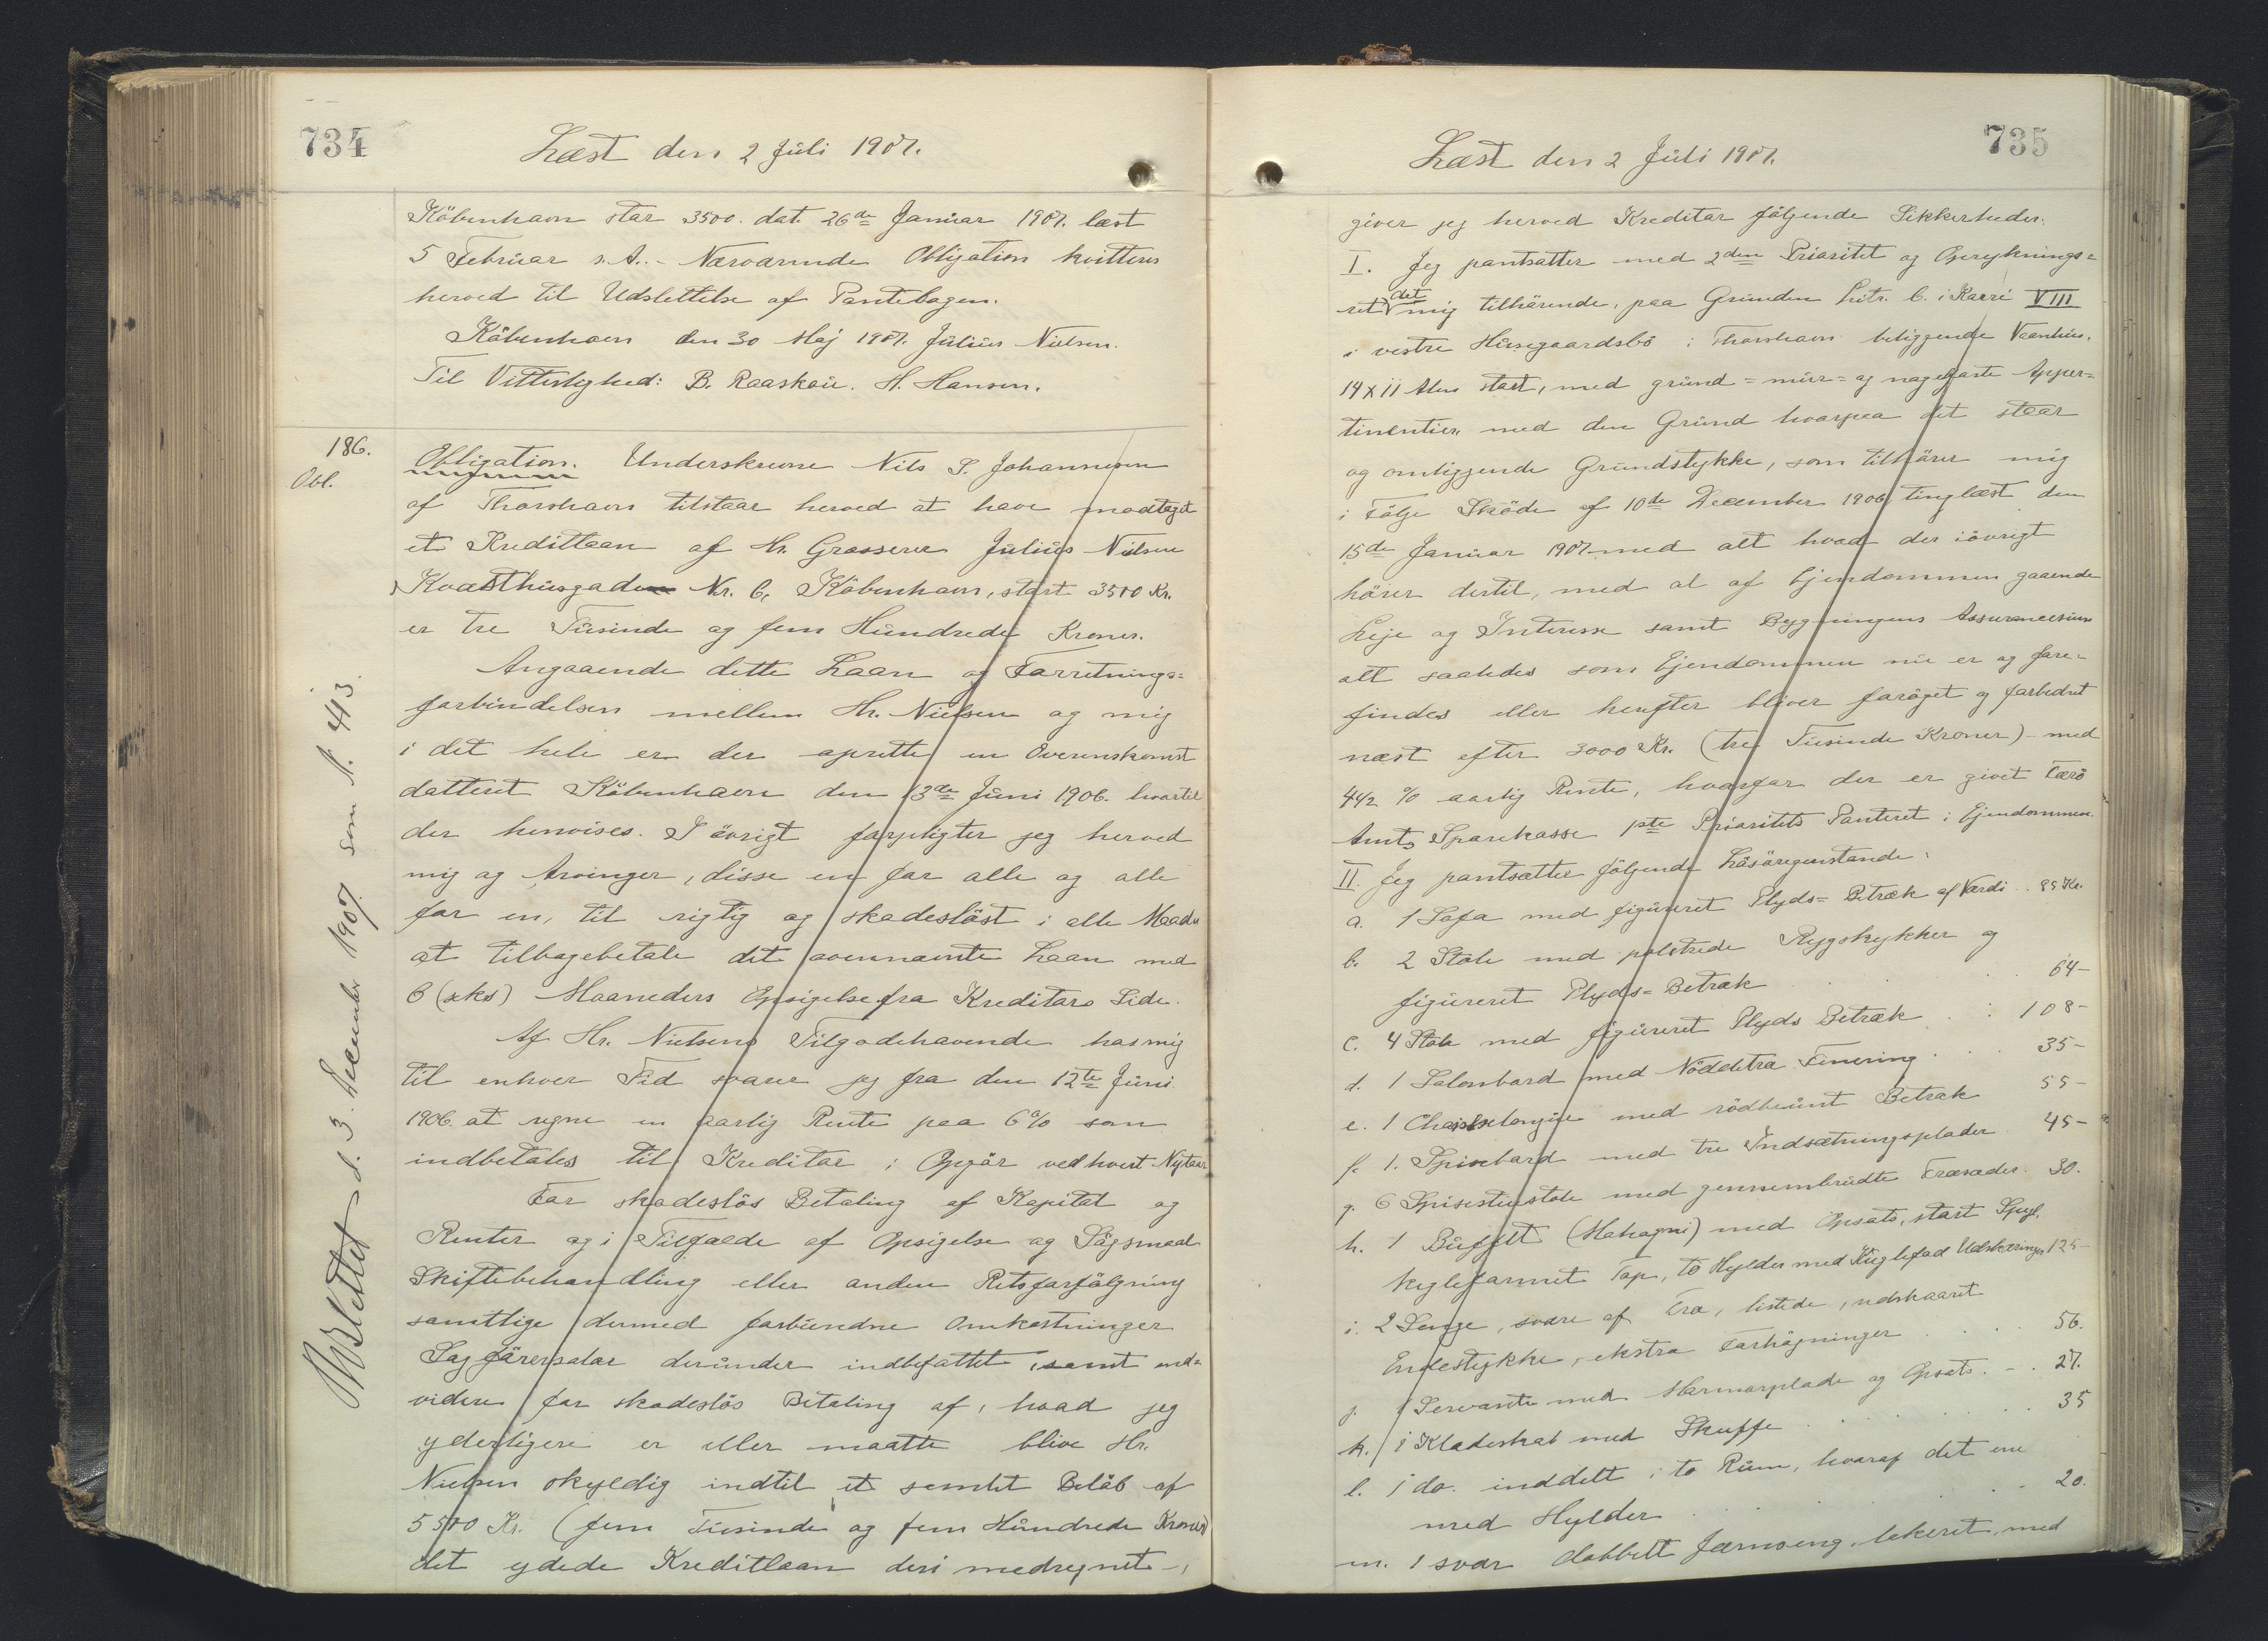 734
Læst den 2 Juli 1907.
København stor 3500. dat. 26de Januar 1907. læst
5 Februar s. A. - Nærværende Obligation kvitteres
herved til Udslettelse af Pantebogen.
København den 30 Maj 1907. Julius Nielsen.
Til Vitterlighed: B. Raaskou. H. Hansen.
186.
Obl.
Obligation. Underskrevne Nils S. Johannesen
af Thorshavn tilstaar herved at have modtaget
et Kreditlaan af Hr. Grosserer Julius Nielsen
Kvæsthusgade Nr. 6, København, stort 3500 Kr.
er tre Tusinde og fem Hundrede Kroner.
Angaaende dette Laan og Forretnings=
forbindelsen mellem Hr. Nielsen og mig
i det hele er der oprettet en Overenskomst
datteret København den 13de Juni 1906. hvortil
der henvises. I øvrigt forpligter jeg herved
mig og Arvinger, disse en for alle og alle
for en, til rigtig og skadesløst i alle Maader
at tilbagebetale det ovennævnte Laan med
6 (seks) Maaneders Opsigelse fra Kreditors Side.
Af Hr. Nielsens Tilgodehavende hos mig
til enhver Tid svarer jeg fra den 12te Juni
1906. at regne en aarlig Rente paa 6% som
indbetales til Kreditor i Opgør ved hvert Nytaar
For skadesløs Betaling af Kapital og
Renter og i Tilfælde af Opsigelse og Søgsmaal
Skiftebehandling eller anden Retsforfølgning
samtlige dermed forbundne Omkostninger
Sagførersalær derunder indbefattet, samt end=
videre for skadesløs Betaling af, hvad jeg
yderligere er eller maatte blive Hr.
Nielsen skyldig indtil et samlet Beløb af
5500 Kr. (fem Tusinde og fem Hundrede Kroner)
det ydede Kreditlaan deri medregnet -,
Udslettet d. 3. December 1907 som N. 413.
735
Læst den 2 Juli 1907.
giver jeg herved Kreditor følgende Sikkerheder.
I. Jeg pantsætter med 2den Prioritet og Opryknings=
ret det mig tilhørende, paa Grunden Litr. C. i Karré VIII
i vestre Husegaardsbø i Thorshavn beliggende Vaanhus,
14 x 11 Alen stort, med grund= mur= og nagelfaste Apper=
tinentier, med den Grund hvorpaa det staar
og omliggende Grundstykke, som tilhører mig
i Følge Skøde af 10de December 1906, tinglæst den
15de Januar 1907. med alt hvad der iøvrigt
hører dertil, med al af Ejendommen gaaende
Leje og Interesse samt Bygningens Assurancesum
alt saaledes som Ejendommen nu er og fore=
findes eller herefter bliver forøget og forbedret
næst efter 3000 Kr. (tre Tusinde Kroner) - med
4 1/2 % aarlig Rente, hvorfor der er givet Færø
Amts Sparekasse 1ste Prioritets Panteret i Ejendommen.
II. Jeg pantsætter følgende Løsøregenstande:
a. 1 Sofa med figureret Plyds= Betræk af Værdi .. 85 Kr.
b. 2 Stole med polstrede Rygstykker og
figureret Plyds= Betræk . . 64-
c. 4 Stole med figureret Plyds Betræk . . 108-
d. 1 Salonbord med Nøddetræ Finering . . . 35-
e. 1 Chaiselongue med rødbrunt Betræk 55-
f. 1. Spisebord med tre Indsætningsplader. 45-
g. 6 Spisestuestole med gennembrudte Træsæder. 30.
h. 1 Buffet (Mahogni) med Opsats, stort Spejl,
kegleformet Top, to Hylder med Kuglefod Udskæringer 125-
i. 2 Senge, svære af Træ, listede, udskaaret
Endestykke, ekstra Forhøjninger . . . . 56.
j. 1 Servante med Marmorplade og Opsats. - . 27.
k. 1 Klædeskab med Skuffe . . . . . 35
l. 1 do. inddelt i to Rum, hvoraf det ene
med Hylder . . . . 20.
m. 1 svær dobbelt Jernseng, lakeret, med